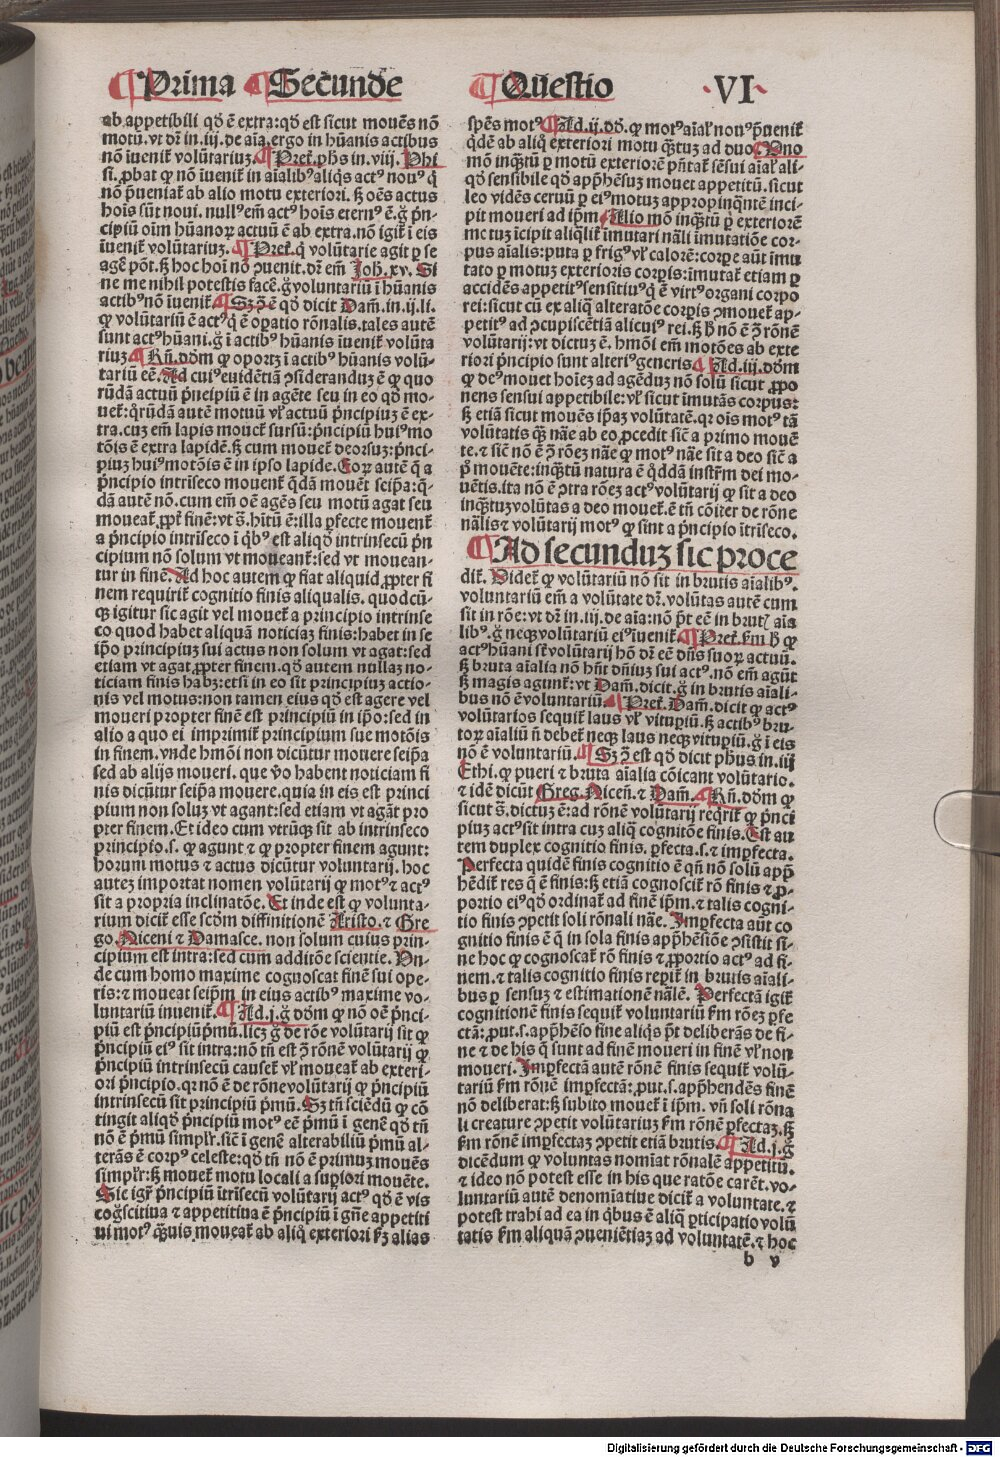 ¶ Prima ¶ Secunde
¶ Questio VI
ab appetibili qd̄ ē extra: qd̄ est sicut mouēs nō
motū. vt dr̄ in .iij. de aīa. ergo in hūanis actibus
nō īuenit̄ volūtariuz. ¶ Pret̄. ph̄s in .viij. Phi
si. ꝓbat ꝙ nō īuenit̄ in aīalib⁹ aliq̄s act⁹ nou⁹ q̄
nō p̄ueniat̄ ab alio motu exteriori. sꝫ oēs actus
hoīs sūt noui. null⁹ em̄ act⁹ hoīs etern⁹ ē. g̊ p̄n-
cipiū oīm hūanoꝝ actuū ē ab extra. nō igit̄ ī eis
īuenit̄ volūtariuz. ¶ Pret̄. q̄ voluntarie agit ꝑ se
agē pōt. sꝫ hoc hoī nō ↄuenit. dr̄ em̄ Joh̄. xv. Si
ne me nihil potestis facē. g̊ voluntariū ī hūanis
actib⁹ nō īuenit̄. ¶ Sꝫ ↄ̄ ē qd̄ dicit Dam̄. in .ij. li.
ꝙ volūtariū ē act⁹ q̄ ē oꝑatio rōnalis. tales autē
sunt act⁹ hūani. g̊ ī actib⁹ hūanis īuenit̄ volūta
riuz. ¶ Rn̄. dd̄m ꝙ oportꝫ ī actib⁹ hūanis volū-
tariū eē. Ad cui⁹ euidētiā ↄsiderandūz ē ꝙ quo
rūdā actuū p̄ncipiū ē in agēte seu in eo qd̄ mo-
uet̄: q̄rūdā autē motuū vl̄ actuū p̄ncipiuz ē ex-
tra. cuz em̄ lapis mouet̄ sursū: p̄ncipiū hui⁹ mo
tōis ē extra lapidē. sꝫ cum mouet̄ deorsuz: p̄nci-
piuz hui⁹ motōis ē in ipso lapide. Eoꝝ autē q̄ a
p̄ncipio intrīseco mouent̄ q̄dā mouēt seip̄a: q̄-
dā autē nō. cum em̄ oē agēs seu motū agat seu
moueat̄ ꝓpt̄ finē: vt s̄. hītū ē: illa ꝑfecte mouent̄
a p̄ncipio intrīseco ī q̄b⁹ est aliqd̄ intrinsecū p̄n
cipium nō solum vt moueant̄: sed vt mouean-
tur in finē. Ad hoc autem ꝙ fiat aliquid ꝓpter fi
nem requirit̄ cognitio finis aliqualis. quodcū-
qꝫ igitur sic agit vel mouet̄ a principio intrinse
co quod habet aliquā noticiaz finis: habet in se
ip̄o principiuz sui actus non solum vt agat: sed
etiam vt agat ꝓpter finem. qd̄ autem nullaz no-
ticiam finis habꝫ: etsi in eo sit principiuz actio-
nis vel motus: non tamen eius qd̄ est agere vel
moueri propter finē est principiū in ip̄o: sed in
alio a quo ei imprimit̄ principium sue motōis
in finem. vnde hmōi non dicūtur mouere seip̄a
sed ab alijs moueri. que v̊o habent noticiam fi
nis dicūtur seip̄a mouere. quia in eis est princi
pium non soluz vt agant: sed etiam vt agāt pro
pter finem. Et ideo cum vtrūqꝫ sit ab intrinseco
principio. s. ꝙ agunt ⁊ ꝙ propter finem agunt:
horum motus ⁊ actus dicūtur voluntarij. hoc
autez importat nomen voluntarij ꝙ mot⁹ ⁊ act⁹
sit a propria inclinatōe. Et inde est ꝙ volunta-
rium dicit̄ esse scd̄m diffinitionē Aristo. ⁊ Gre
go. Niceni ⁊ Damasce. non solum cuius prin-
cipium est intra: sed cum additōe scientie. Vn-
de cum homo maxime cognoscat finē sui ope-
ris: ⁊ moueat seip̄m in eius actib⁹ maxime vo-
luntariū inuenit̄. ¶ Ad .j. g̊ dd̄m ꝙ nō oē p̄nci-
piū est p̄ncipiū p̄mū. licꝫ g̊ de rōe volūtarij sit ꝙ
p̄ncipiū ei⁹ sit intra: nō tn̄ est ↄ̄ rōnē volūtarij ꝙ
p̄ncipiū intrinsecū causet̄ vl̄ moueat̄ ab exteri-
ori p̄ncipio. qꝛ nō ē de rōne voluntarij ꝙ p̄ncipiū
intrinsecū sit principiū p̄mū. Sꝫ tn̄ sciēdū ꝙ cō
tingit aliqd̄ p̄ncipiū mot⁹ eē p̄mū ī genē qd̄ tn̄
nō ē p̄mū simplr̄. sic̄ ī genē alterabiliū p̄mū al-
terās ē corp⁹ celeste: qd̄ tn̄ nō ē primuz mouēs
simplr̄: sꝫ mouet̄ motu locali a suꝑiori mouēte.
Sic igr̄ p̄ncipiū ītrīsecū volūtarij act⁹ qd̄ ē vis
cog̊scitiua ⁊ appetitiua ē p̄ncipiū ī gn̄e appetiti
ui mot⁹ q̄uis moueat̄ ab aliq̊ exteriori fꝫ alias
spēs mot⁹. ¶ Ad .ij. dd̄. ꝙ mot⁹ aīal̄ nou⁹ p̄uenit̄
q̄dē ab aliq̊ exteriori motu q̄tuz ad duo. Vno
mō inq̄tū ꝑ motū exteriorē p̄ntat̄ sēsui aīal̄ ali-
qd̄ sensibile qd̄ app̄hēsuz mouet appetitū. sicut
leo vidēs ceruū ꝑ ei⁹ motuz appropinq̄ntē inci-
pit moueri ad ip̄m. Alio mō inq̄tū ꝑ exteriorē
motuz īcipit aliq̄lit̄ īmutari nāli īmutatiōe cor-
pus aīalis: puta ꝑ frig⁹ vl̄ calorē: corꝑe aūt īmu
tato ꝑ motuz exterioris corꝑis: īmutat̄ etiam ꝑ
accidēs appetit⁹ sensitiu⁹ q̄ ē virt⁹ organi corpo
rei: sicut cū ex aliq̄ alteratōe corꝑis ↄ̄mouet̄ ap-
petit⁹ ad ↄcupiscētiā alicui⁹ rei. sꝫ h̊ nō ē ↄ̄ rōnē
volūtarij: vt dictuz ē. hmōi em̄ motōes ab exte
riori p̄ncipio sunt alteri⁹ generis. ¶ Ad .iij. dd̄m
ꝙ de⁹ mouet hoīez ad agēduz nō solū sicut ꝓpo
nens sensui appetibile: vl̄ sicut īmutās corpus:
sꝫ etiā sicut mouēs ip̄az volūtatē. qꝛ oīs mot⁹ tā
volūtatis q̄ nāe ab eo ꝓcedit sic̄ a primo mouē
te. ⁊ sic̄ nō ē ↄ̄ rōez nāe ꝙ mot⁹ nāe sit a deo sic̄ a
p̊ mouēte: inq̄tū natura ē q̄ddā instr̄m dei mo-
uētis. ita nō ē ↄtra rōez act⁹ volūtarij ꝙ sit a deo
inq̄tuz volūtas a deo mouet̄. ē tn̄ cōiter de rōne
nālis ⁊ volūtarij mot⁹ ꝙ sint a p̄ncipio ītrīseco.
¶ Ad secunduz sic proce
dit̄. Videt̄ ꝙ volūtariū nō sit in brutis aīalib⁹.
voluntariū em̄ a volūtate dr̄. volūtas autē cum
sit in rōe: vt dr̄ in .iij. de aīa: nō p̄t eē in brutꝭ aīa
lib⁹. g̊ neqꝫ volūtariū ei⁹ īuenit̄. ¶ Pret̄. fm h̊ ꝙ
act⁹ hūani sūt volūtarij hō dr̄ eē dn̄s suoꝝ actuū.
sꝫ bruta aīalia nō hn̄t dn̄iuz sui act⁹. nō em̄ agūt
sꝫ magis agunt̄: vt Dam̄. dicit. g̊ in brutis aīali-
bus nō ē voluntariū. ¶ Pret̄. Dam̄. dicit ꝙ act⁹
volūtarios sequit̄ laus vl̄ vituꝑiū. sꝫ actib⁹ bru-
toꝝ aīaliū n̄ debet̄ neqꝫ laus neqꝫ vituꝑiū. g̊ ī eis
nō ē voluntariū. ¶ Sꝫ ↄ̄ est qd̄ dicit ph̄us in .iij
Ethi. ꝙ pueri ⁊ bruta aīalia cōicant volūtario.
⁊ idē dicūt Greg. Nicen̄. ⁊ Dam̄. ¶ Rn̄. dd̄m ꝙ
sicut s̄. dictuz ē: ad rōnē volūtarij reqrit̄ ꝙ p̄nci
piuz act⁹ sit intra cuz aliq̄ cognitōe finis. Est au
tem duplex cognitio finis. ꝑfecta .s. ⁊ imꝑfecta.
Perfecta quidē finis cognitio ē qn̄ nō solū app̄
hēdit̄ res q̄ ē finis: sꝫ etiā cognoscit̄ rō finis ⁊ ꝓ-
portio ei⁹ qd̄ ordinat̄ ad finē ip̄m. ⁊ talis cogni-
tio finis ↄpetit soli rōnali nāe. Imꝑfecta aūt co
gnitio finis ē q̄ in sola finis app̄hēsiōe ↄsistit si-
ne hoc ꝙ cognoscat̄ rō finis ⁊ ꝓportio act⁹ ad fi-
nem. ⁊ talis cognitio finis reꝑit̄ in brutis aīali-
bus ꝑ sensuz ⁊ estimationē nālē. Perfectā igit̄
cognitionē finis sequit̄ voluntariū fm rōez ꝑfe
ctā: ꝓut .s. app̄hēso fine aliq̄s p̄t deliberās de fi-
ne ⁊ de his q̄ sunt ad finē moueri in finē vl̄ non
moueri. Imꝑfectā autē rōnē finis sequit̄ volū-
tariū fm rōnē imꝑfectā: ꝓut .s. app̄hendēs finē
nō deliberat: sꝫ subito mouet̄ ī ip̄m. vn̄ soli rōna
li creature ↄpetit voluntariuz fm rōnē ꝑfectaz. sꝫ
fm rōnē imꝑfectaz ↄpetit etiā brutis. ¶ Ad .j. g̊
dicēdum ꝙ voluntas nomīat rōnalē appetitū.
⁊ ideo nō potest esse in his que ratōe carēt. vo-
luntariū autē denomīatiue dicit̄ a voluntate. ⁊
potest trahi ad ea in q̄bus ē aliq̄ ꝑticipatio volū
tatis fm aliquā ↄueniētiaz ad voluntatē. ⁊ hoc
b v
Digitalisierung gefördert durch die Deutsche Forschungsgemeinschaft - DFG